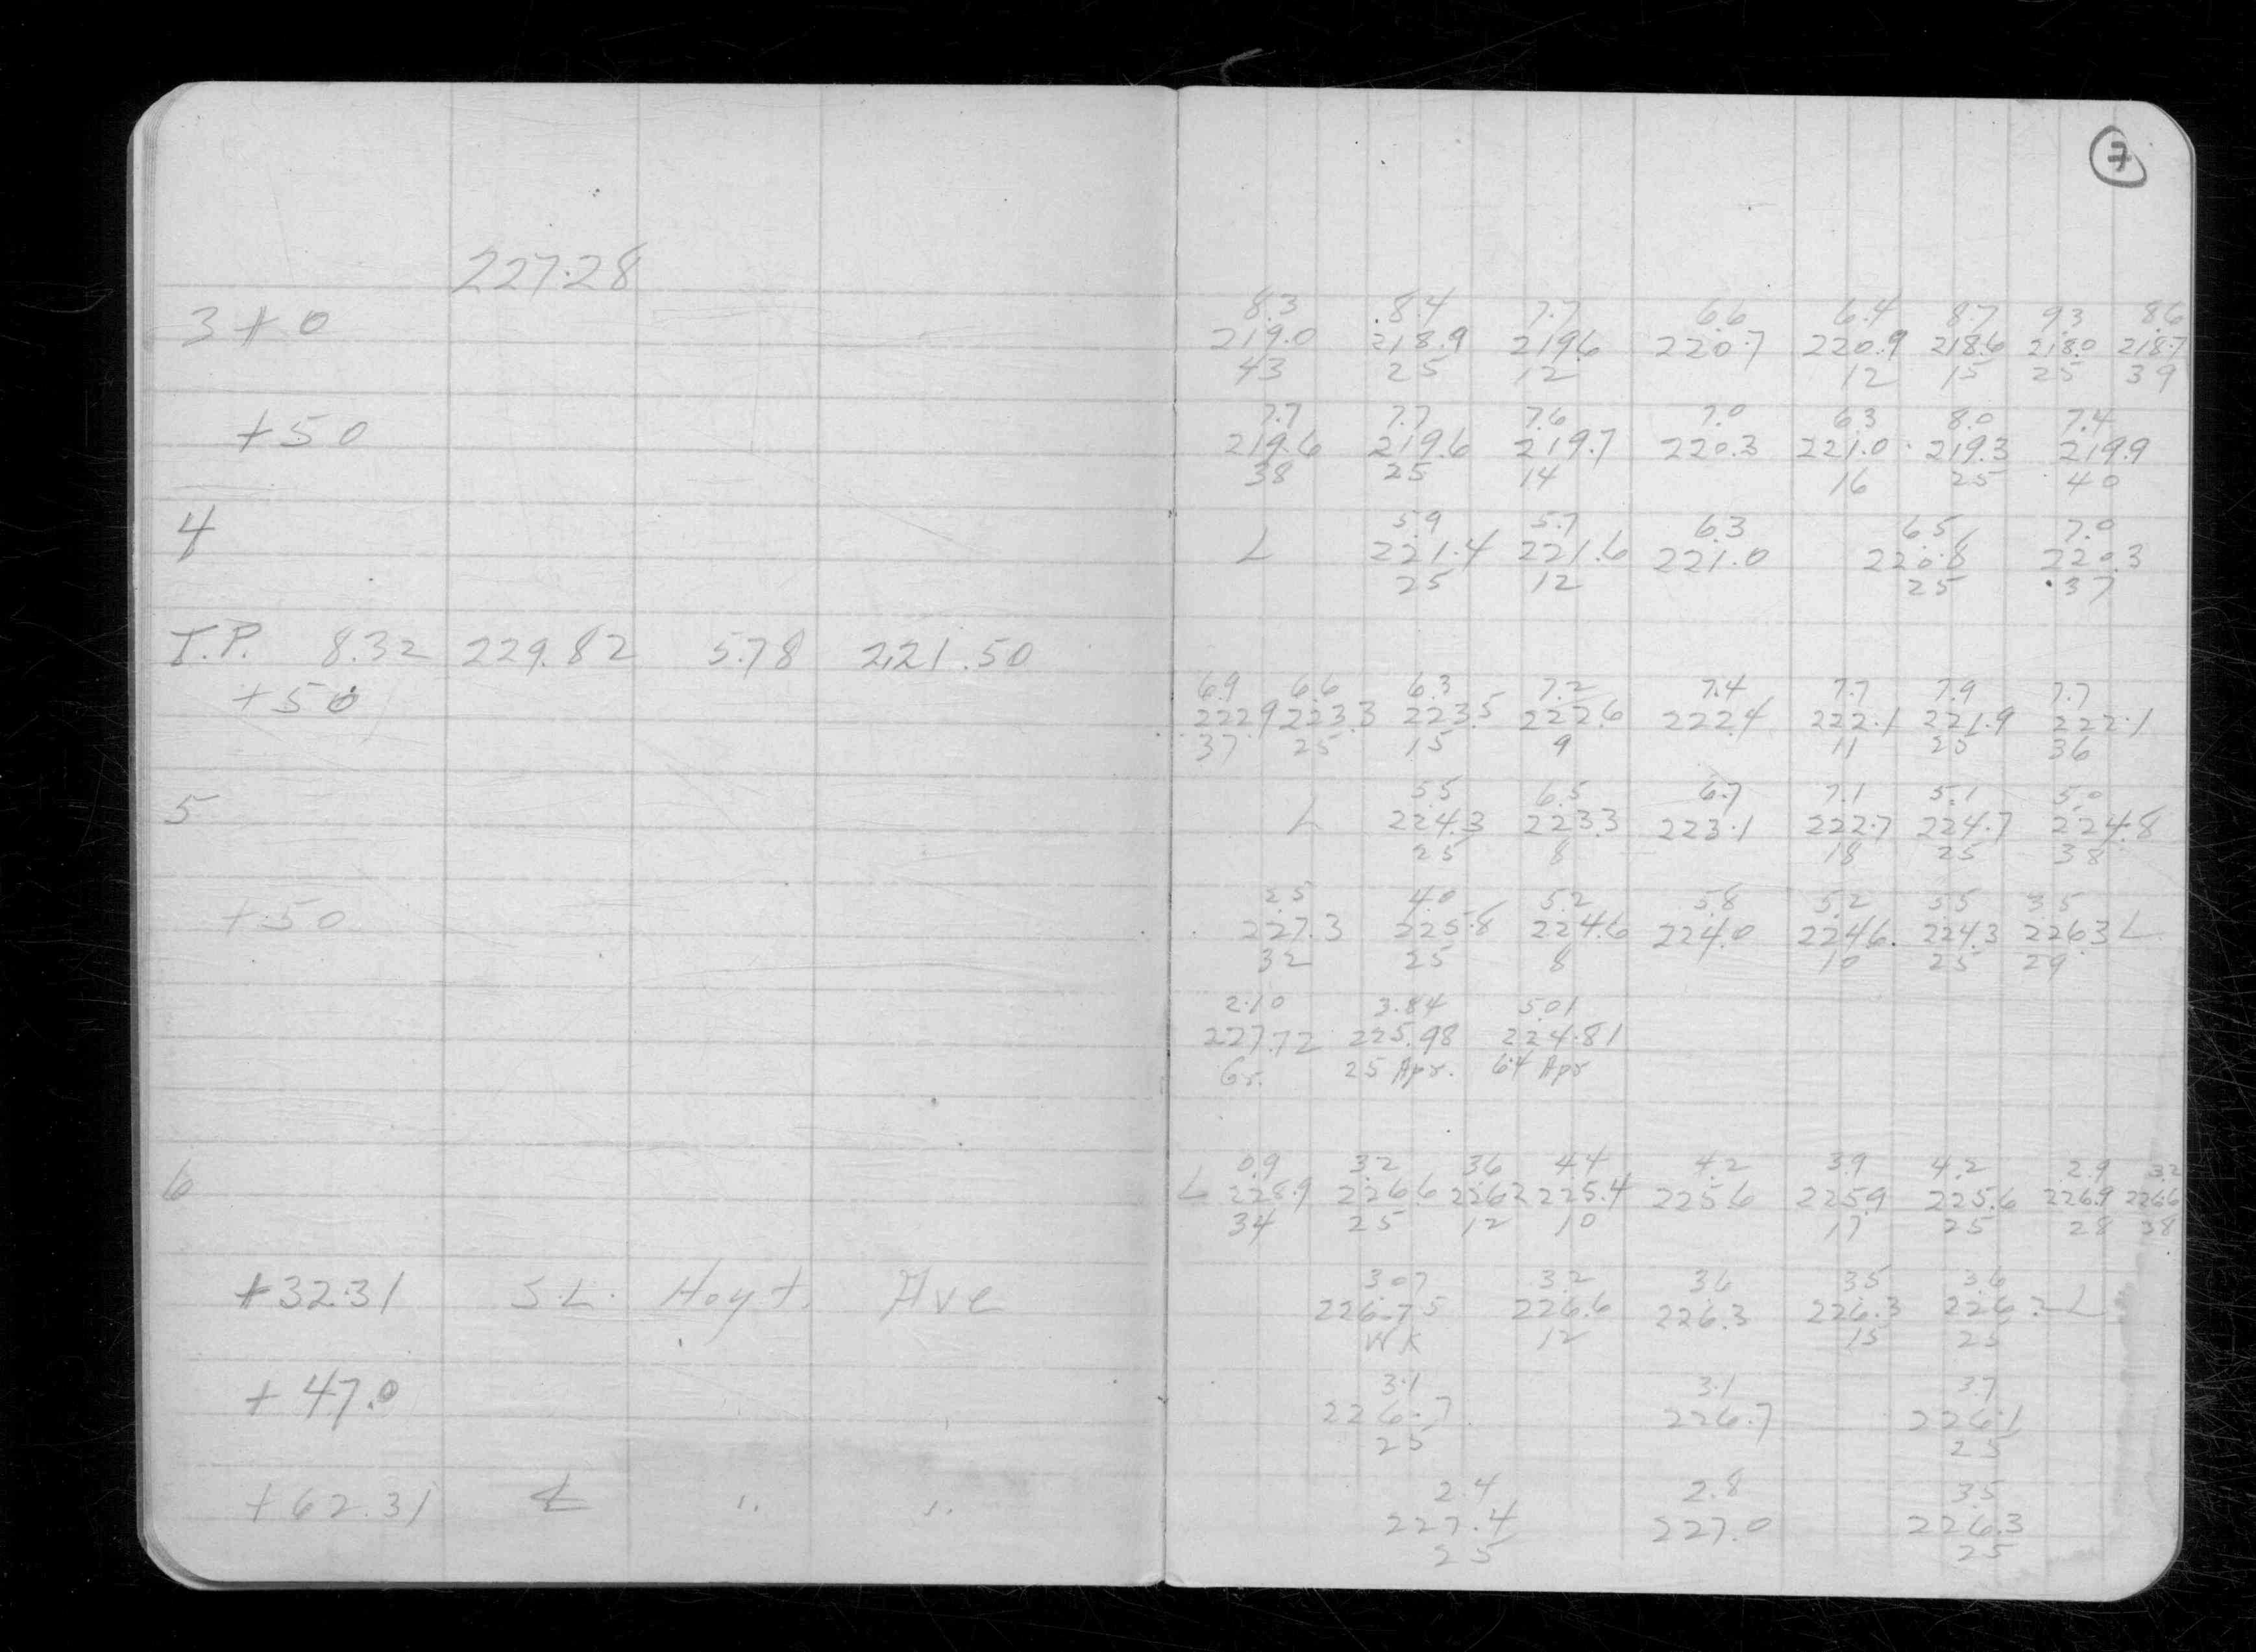 7
227.28
8.3 8.4 7.7 6.6 6.4 8.7 9.3 8.6
3+0 219.0 218.9 219.6 220.7 220.9 218.6 218.0 218.7
43 25 12 12 15 25 39
7.7 7.7 7.6 7.0 6.3 8.0 7.4
+50 219.6 219.6 219.7 220.3 221.0 219.3 219.9
38 25 14 16 25 40
5.9 5.7 6.3 6.5 7.0
4 L 221.4 221.6 221.0 220.8 220.3
25 12 25 37
T.P. 8.32 229.82 5.78 221.50
6.9 6.6 6.3 7.2 7.4 7.7 7.9 7.7
+50 222.9 223.3 223.5 222.6 222.4 222.1 221.9 222.1
37 25 15 9 11 25 36
5.5 6.5 6.7 7.1 5.1 5.0
5 L 224.3 223.3 223.1 222.7 224.7 224.8
25 8 18 25 38
2.5 4.0 5.2 5.8 5.2 5.5 3.5
+50 227.3 225.8 224.6 224.0 224.6 224.3 226.3 L
32 25 8 10 25 29
2.10 3.84 5.01
227.72 225.98 224.81
Gr. 25 Apr. 64 Apr
0.9 3.2 3.6 4.4 4.2 3.9 4.2 2.9 3.2
6 L 228.9 226.6 226.2 225.4 225.6 225.9 225.6 226.9 226.6
34 25 12 10 17 25 28 38
3.07 3.2 3.6 3.5 3.6
+32.31 S.L. Hoyt. Ave 226.75 226.6 226.3 226.3 226.2 L
WK 12 15 25
3.1 3.1 3.7
+47.0 226.7 226.7 226.1
25 25
2.4 2.8 3.5
+62.31 ℄ " " 227.4 227.0 226.3
25 25